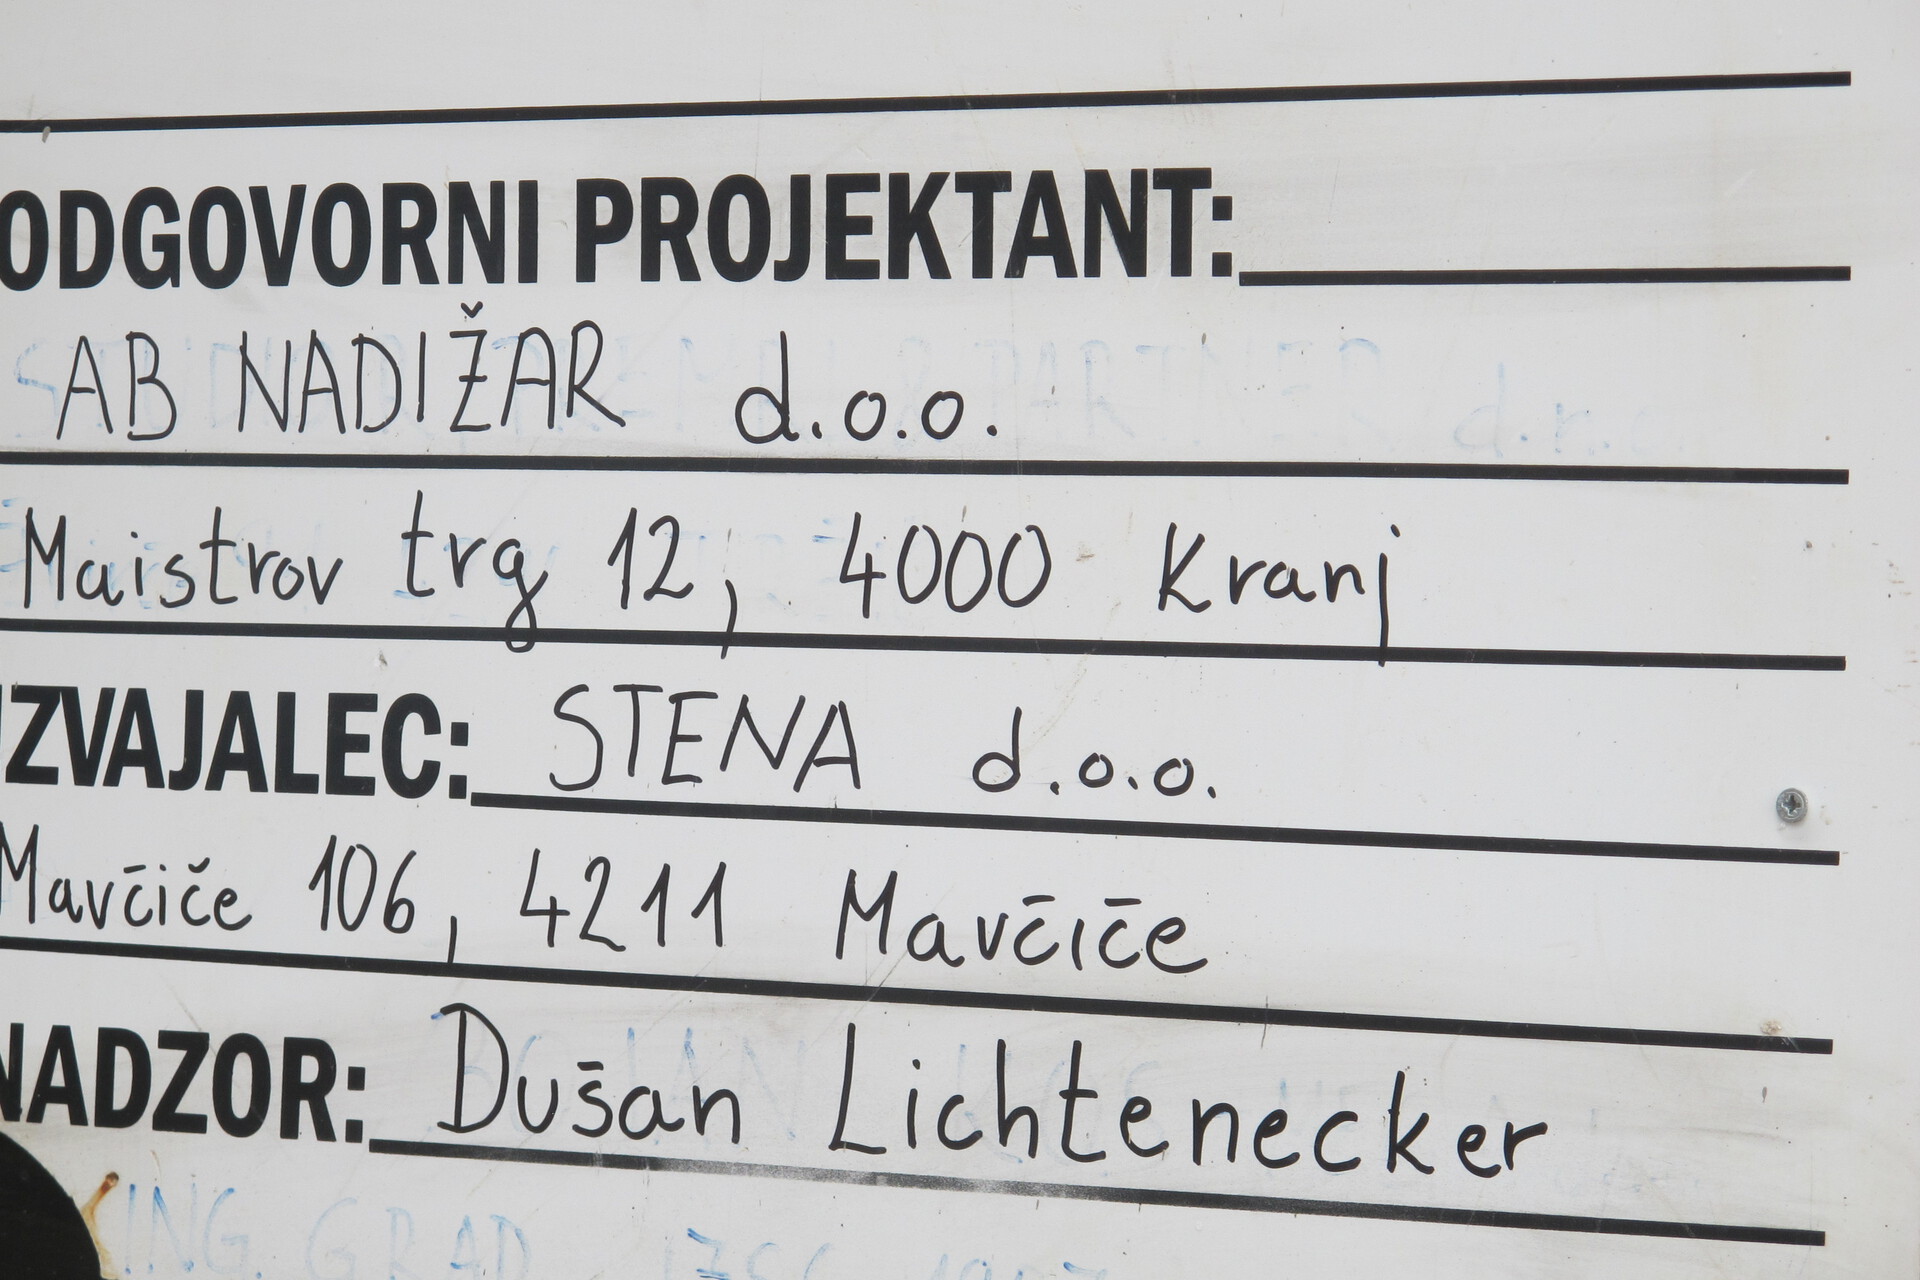 ODGOVORNI PROJEKTANT:
AB NADIŽAR d.o.o.
Maistrov trg 12, 4000 Kranj
IZVAJALEC: STENA d.o.o.
Mavčiče 106, 4211 Mavčiče
NADZOR: Dušan Lichtenecker
ING. GRAD.